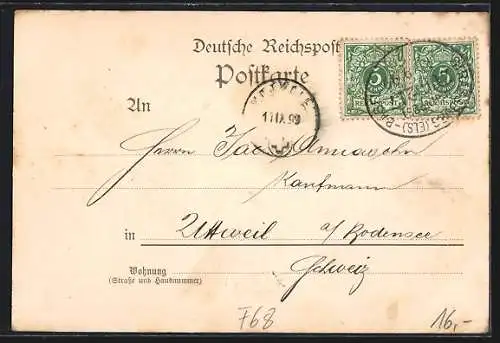 Deutsche Reichspost
Postkarte
5 5
REICHSPOST REICHSPOST
(ELS)
17 IX 99
An
Herrn Jac. Annasohn
Kaufmann
in Uttweil a/Bodensee
Schweiz
Wohnung
(Straße und Hausnummer)
F68
16,-